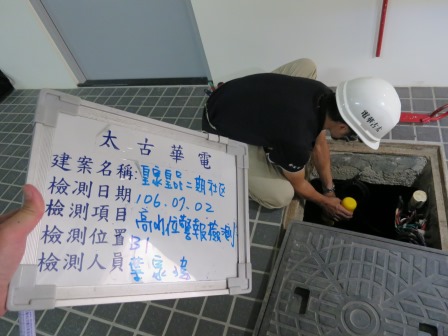 太古華電
建案名稱:皇泉皇品二期社區
檢測日期 106.07.02
檢測項目 高水位警報檢測
檢測位置 B1
檢測人員 葉泉